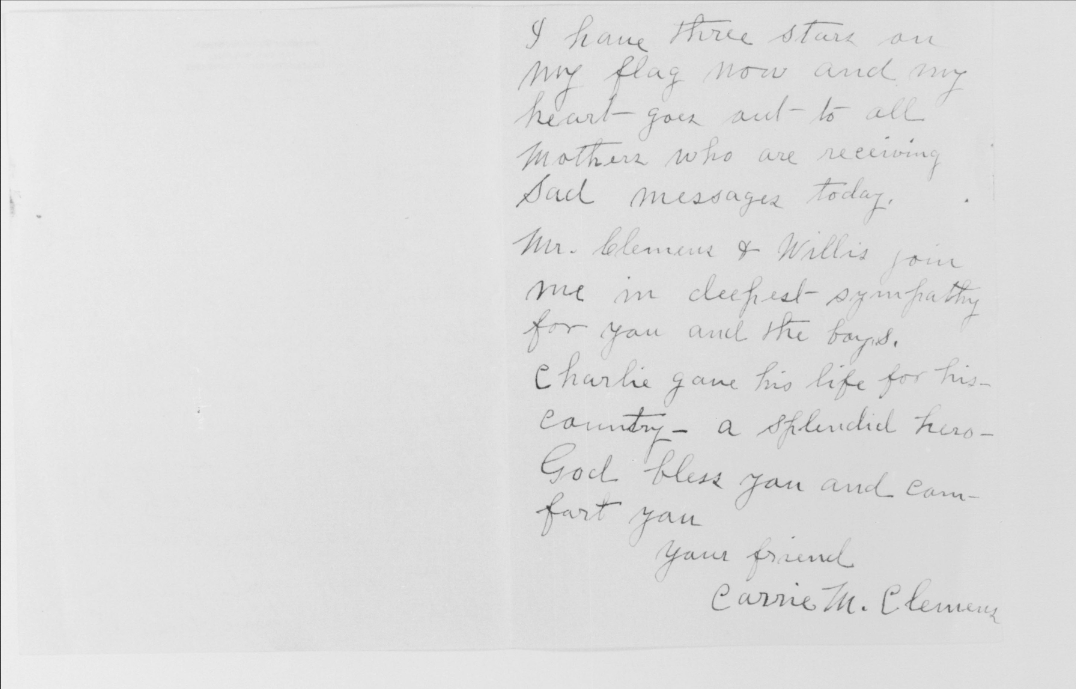 I have three stars on
my flag now and my
heart goes out to all
Mothers who are receiving
Sad messages today.
Mr. Clemens & Willis join
me in deepest sympathy
for you and the boys.
Charlie gave his life for his
country - a splendid hero -
God bless you and com-
fort you
Your friend
Carrie M. Clemens